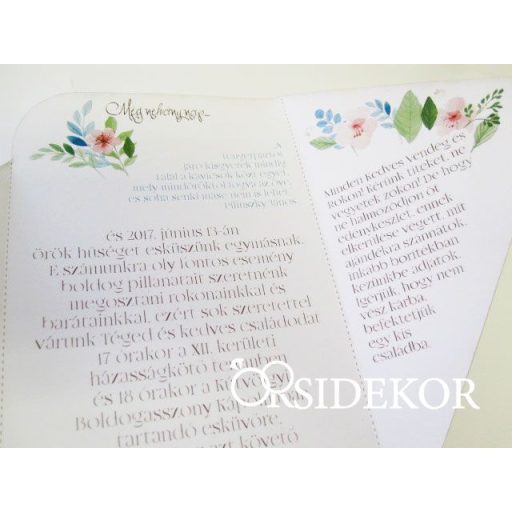 Még néhány nap...
A
tengerparti
járó kisgyerek mindig
talál a kavicsok közt egyet,
mely mindöröktől fogva az övé,
és soha senki másé nem is lehet.
Pilinszky János
és 2017. június 13-án
örök hűséget esküszünk egymásnak.
E számunkra oly fontos esemény
boldog pillanatait szeretnénk
megosztani rokonainkkal és
barátainkkal, ezért sok szeretettel
várunk Téged és kedves családodat
17 órakor a XII. kerületi
házasságkötő teremben
és 18 órakor a
Boldogasszony
tartandó esküvőre,
követő
Minden kedves vendég és
Rokon! Kérünk titeket, ne
vegyétek zokon! De hogy
ne halmozódjon öt
edénykészlet, ennek
elkerülése végett, mit
ajándékra szánnátok,
inkább borítékban
kezünkbe adjátok.
Ígérjük, hogy nem
vész kárba,
befektetjük
egy kis
családba.
ORSIDEKOR